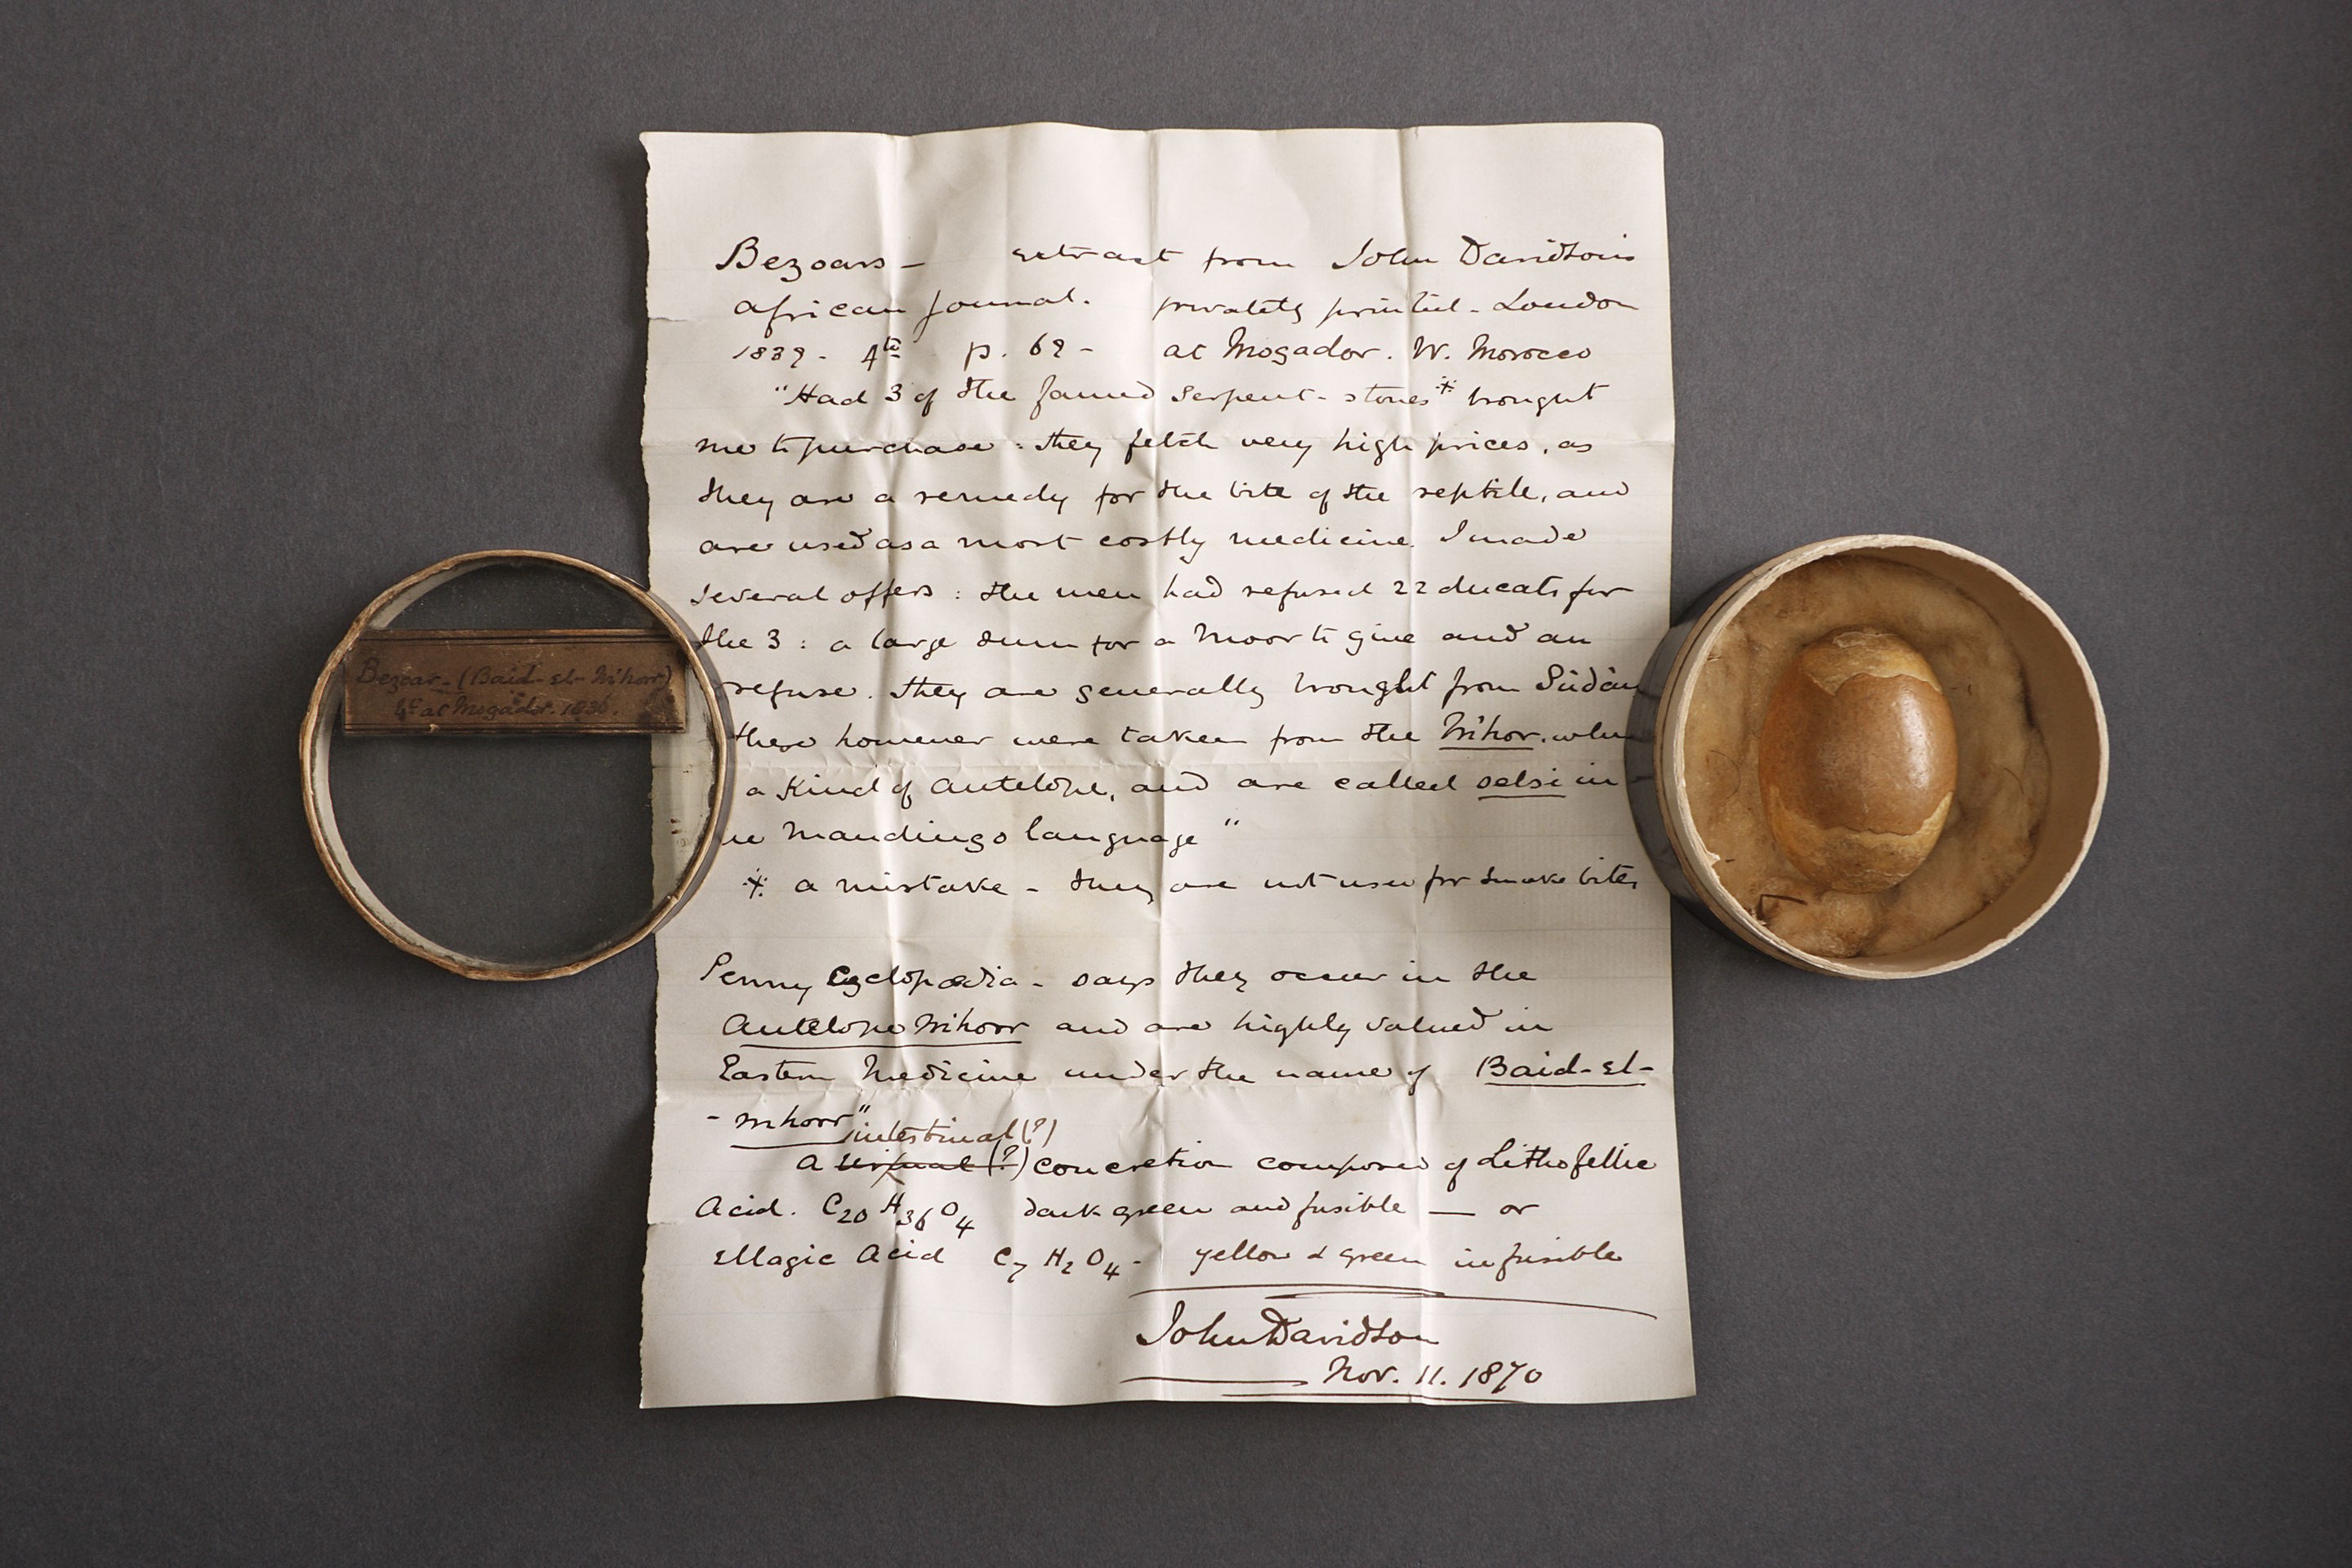 Bezoars — extract from John Davidson's
African Journal. privately printed - London
1839 - 4to p. 69 - at Mogador. W. Morocco
"Had 3 of the famed Serpent-stones* brought
me to purchase : they fetch very high prices, as
they are a remedy for the bite of the reptile, and
are used as a most costly medicine. I made
several offers : the men had refused 22 ducats for
the 3 : a large sum for a Moor to give and an
refuse. they are generally brought from Sudan
these however were taken from the M'hor. whic
a Kind of Antelope, and are called selsi in
Mandingo language"
* a mistake - they are not used for snake bites
Penny Cyclopædia - says they occur in the
Antelope M'horr and are highly valued in
Eastern Medicine under the name of Baid-el-
- m'horr"
intestinal (?)
A (?) concretion composed of Lithofellic
Acid. C20 H36 O4 dark green and fusible — or
Ellagic Acid C7 H2 O4 - yellow & green infusible
John Davidson
Nov. 11. 1870
Bezoar - (Baid-el-M'horr)
at Mogador. 1836.